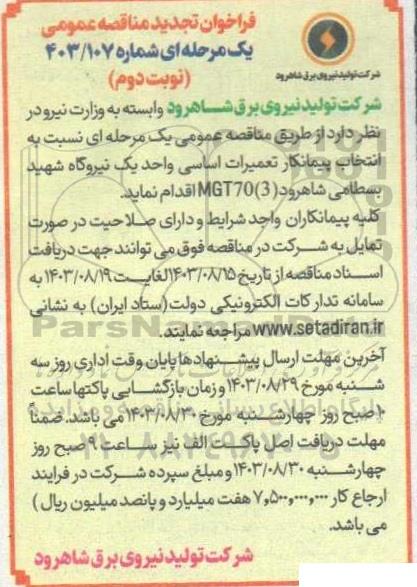 شرکت تولید نیروی برق شاهرود
فراخوان تجدید مناقصه عمومی
یک مرحله ای شماره ۴۰۳/۱۰۷
(نوبت دوم)
شرکت تولید نیروی برق شاهرود وابسته به وزارت نیرو در
نظر دارد از طریق مناقصه عمومی یک مرحله ای نسبت به
انتخاب پیمانکار تعمیرات اساسی واحد یک نیروگاه شهید
بسطامی شاهرود (3)MGT70 اقدام نماید.
کلیه پیمانکاران واجد شرایط و دارای صلاحیت در صورت
تمایل به شرکت در مناقصه فوق می توانند جهت دریافت
اسناد مناقصه از تاریخ ۱۴۰۳/۰۸/۱۵ لغایت ۱۴۰۳/۰۸/۱۹ به
سامانه تدارکات الکترونیکی دولت (ستاد ایران) به نشانی
www.setadiran.ir مراجعه نمایند.
آخرین مهلت ارسال پیشنهادها پایان وقت اداری روز سه
شنبه مورخ ۱۴۰۳/۰۸/۲۹ و زمان بازگشایی پاکتها ساعت
۱۰ صبح روز چهارشنبه مورخ ۱۴۰۳/۰۸/۳۰ می باشد. ضمناً
مهلت دریافت اصل پاکت الف نیز ساعت ۹ صبح روز
چهارشنبه ۱۴۰۳/۰۸/۳۰ و مبلغ سپرده شرکت در فرایند
ارجاع کار ۷,۵۰۰,۰۰۰,۰۰۰ هفت میلیارد و پانصد میلیون ریال )
می باشد.
شرکت تولید نیروی برق شاهرود